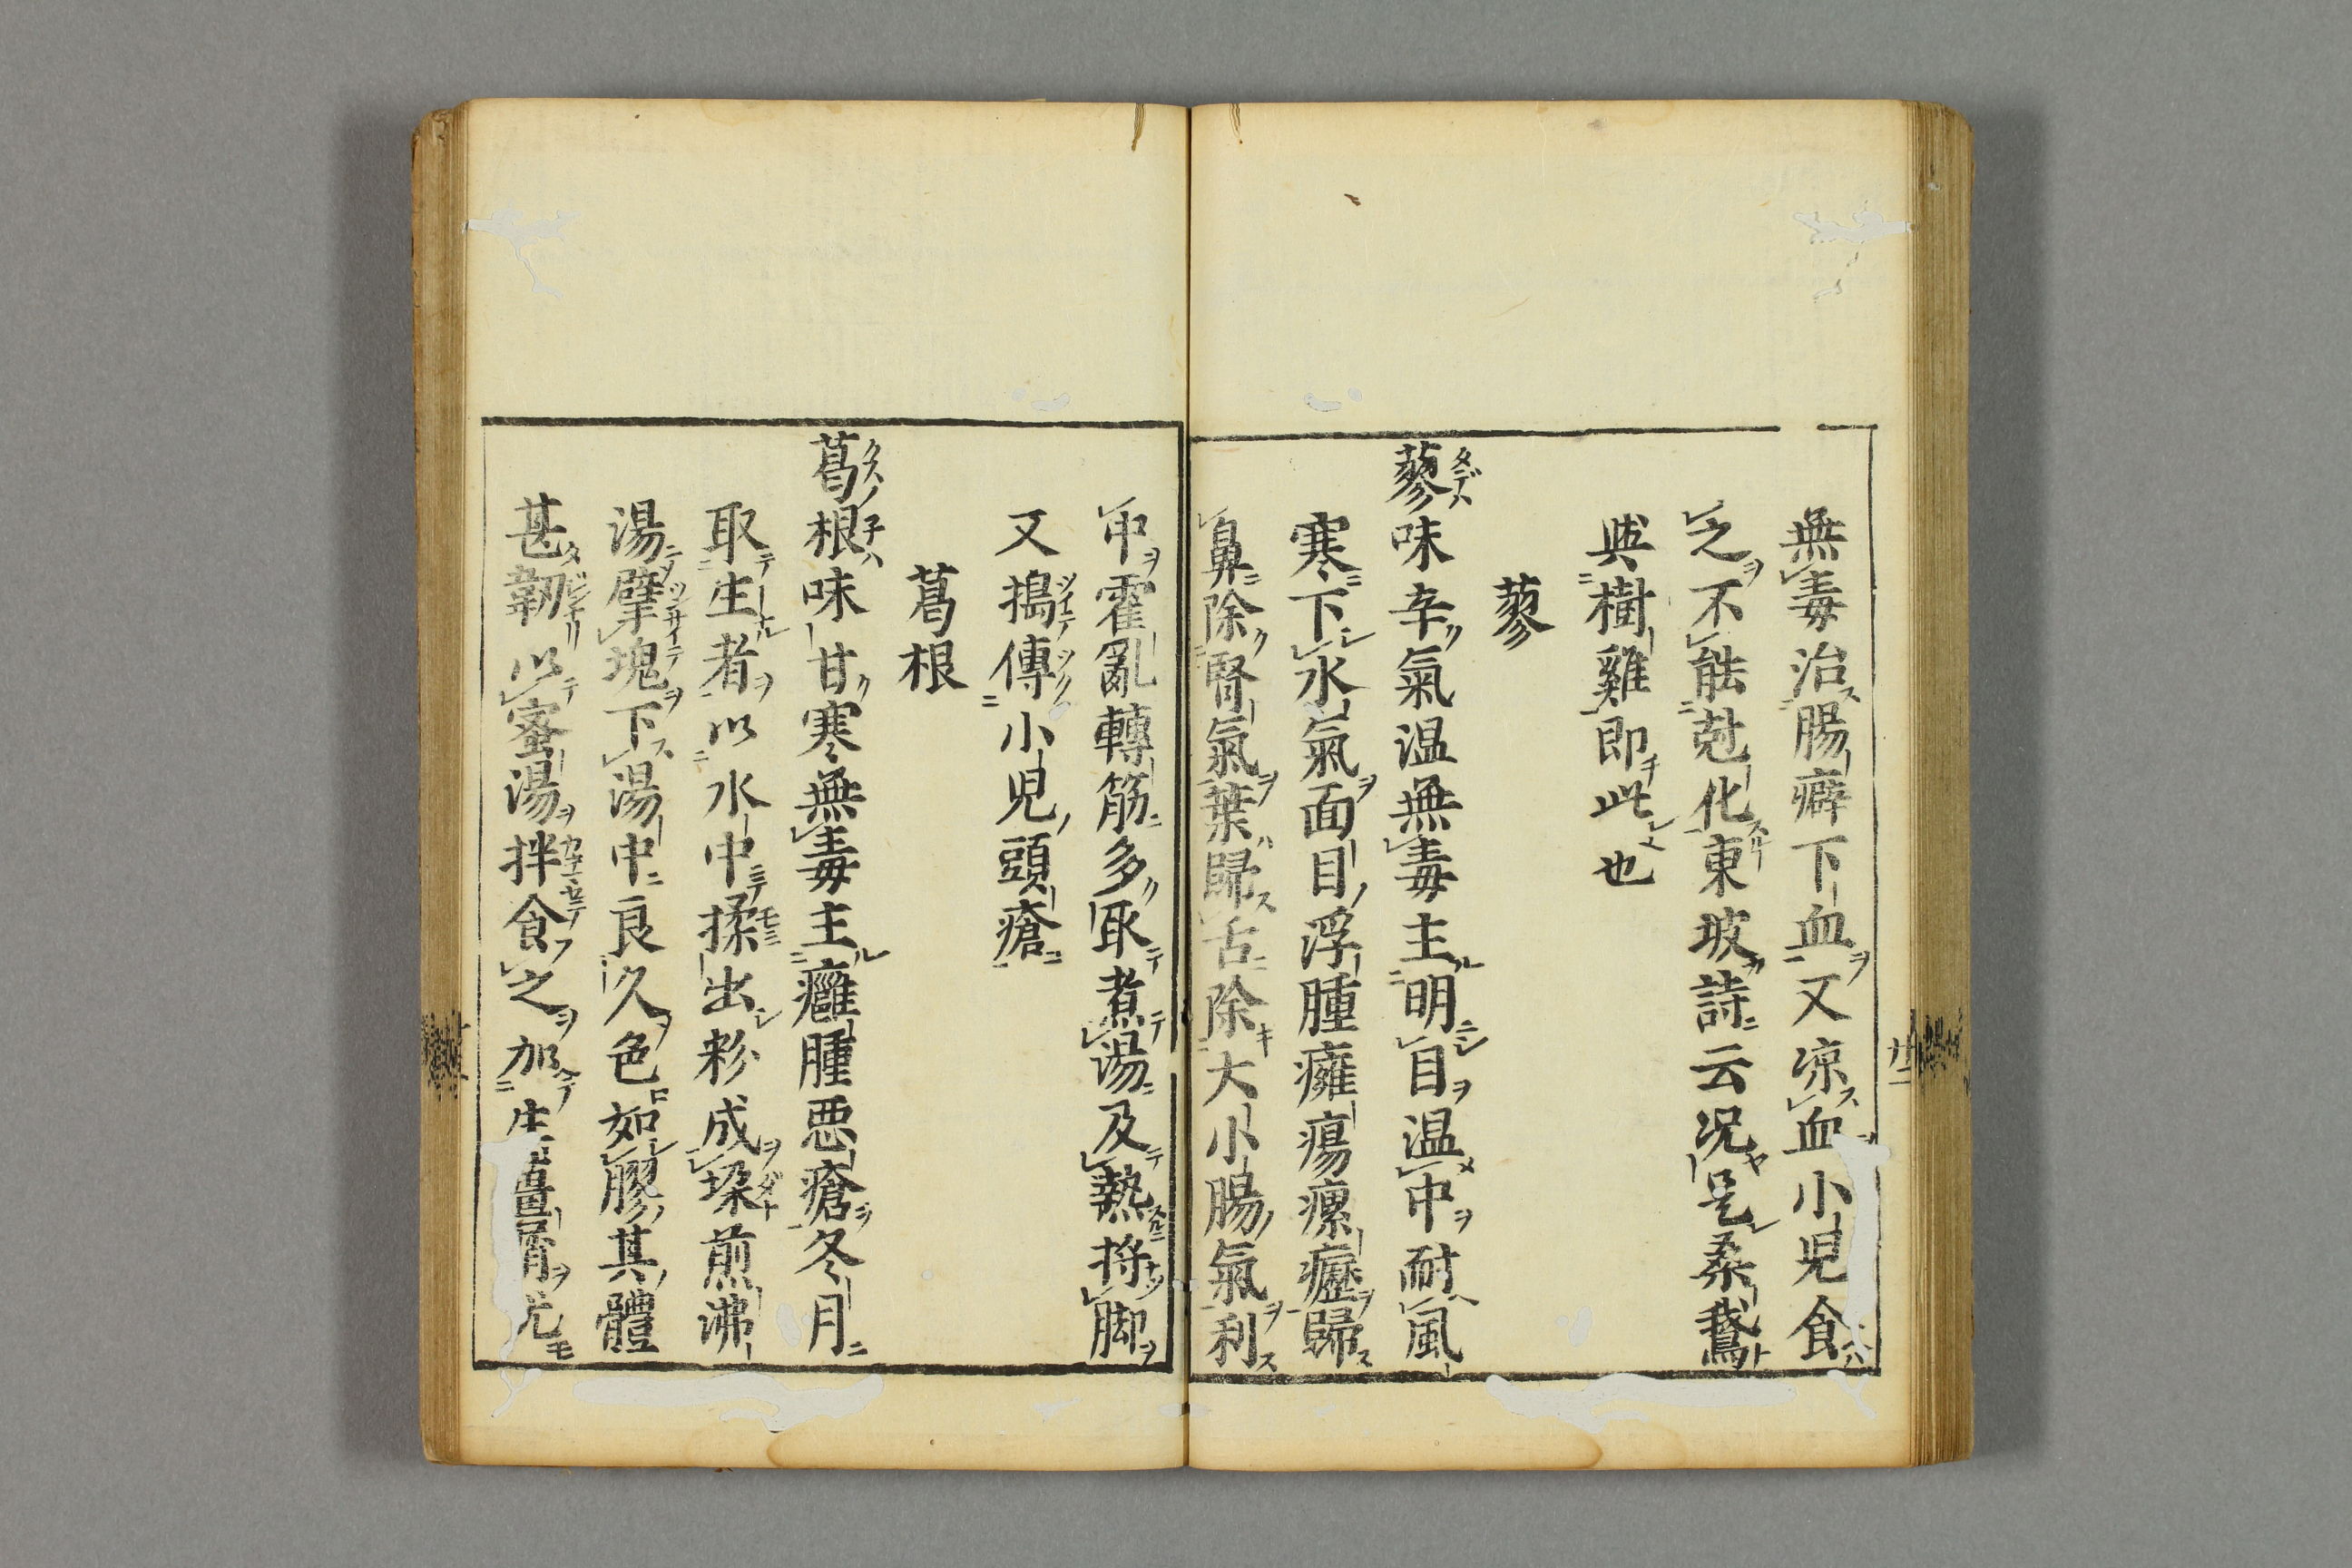 無毒治腸癖下血又凉血小児食
之不能尅化東坡詩云况是桑鵞
與樹雞即此也
蓼
蓼味辛氣温無毒主明目温中耐風
寒下水氣面目浮腫癰瘍瘰癧歸
鼻除腎氣葉歸舌除大小腸氣利
中霍亂轉筋多取煮湯及熱捋脚
又搗傳小児頭瘡
葛根
葛根味甘寒無毒主癰腫悪瘡冬月
取生者以水中揉出粉成垜煎沸
湯擘塊下湯中良久色如膠其體
甚韌以蜜湯拌食之加生薑屑尤
廿二